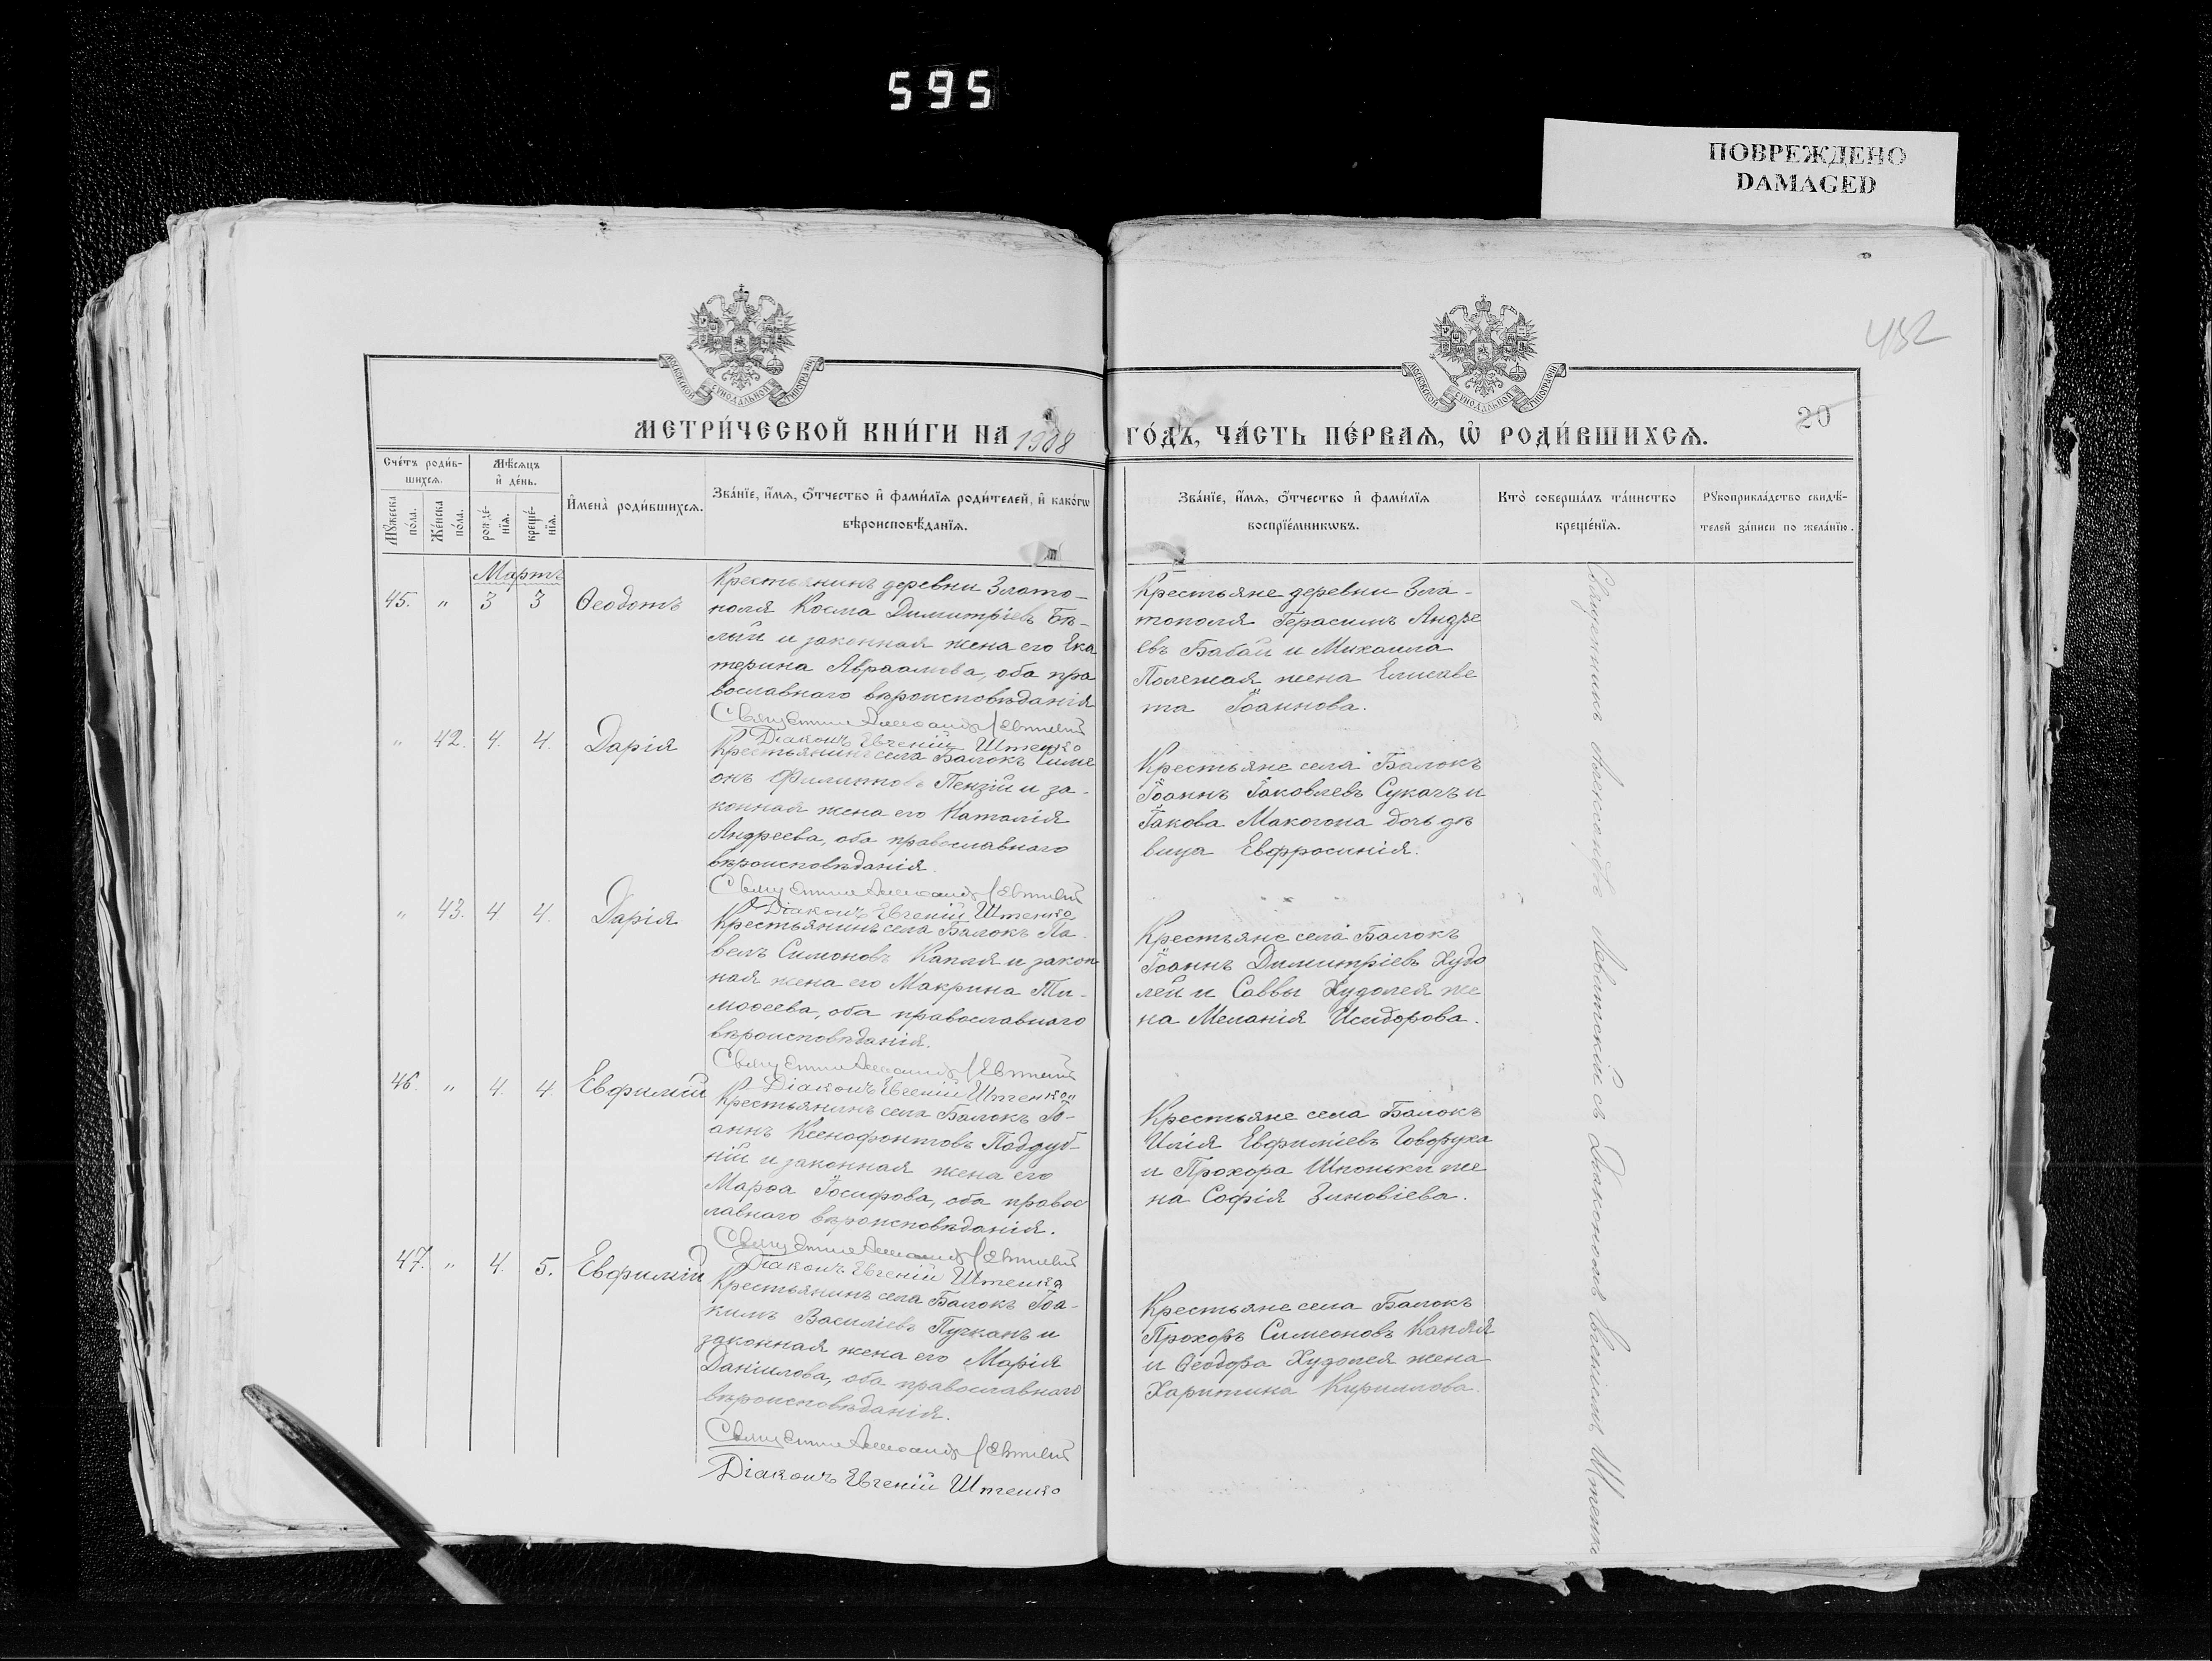 595
ПОВРЕЖДЕНО
DAMAGED
452
МОСКОВСКОЙ СѴНОДАЛЬНОЙ ТИПОГРАФІИ
МОСКОВСКОЙ СѴНОДАЛЬНОЙ ТИПОГРАФІИ
МЕТРИ́ЧЕСКОЙ КНИ́ГИ НА 1908
ГО́ДЪ, ЧА́СТЬ ПЕ́РВАЯ, Ѡ҆ РОДИ́ВШИХСЯ.
20
Сче́тъ роди́в-
шихся.
Мѣ́сяцъ
и҆ де́нь.
Мꙋ́жеска
по́ла.
Же́нска
по́ла.
рожде́-
нїя.
креще́-
нїя.
И҆мена̀ роди́вшихся.
Зва́нїе, и҆́мя, ѻ҆́тчество и҆ фами́лїя роди́телей, и҆ како́гѡ
вѣроисповѣ́данїя.
Зва́нїе, и҆́мя, ѻ҆́тчество и҆ фами́лїя
воспрїе́мникѡвъ.
Кто̀ соверша́лъ та́инство
креще́нїя.
Рꙋкоприкла́дство свидѣ́-
телей за́писи по жела́нїю.
Мартъ
45. " 3 3 Ѳеодотъ
Крестьянинъ деревни Злато-
поля Косма Димитріевъ Бѣ-
лый и законная жена его Ека
терина Авраамова, оба пра
вославнаго вѣроисповѣданія
Священникъ Александръ Левитскій
Діаконъ Евгеній Штенко
Крестьяне деревни Зла-
тополя Герасимъ Андре
евъ Бабай и Михаила
Полежая жена Елисаве
та Іоаннова.
" 42. 4. 4. Дарія
Крестьянинъ села Балокъ Симе
онъ Филипповъ Пензій и за-
конная жена его Наталія
Андреева, оба православнаго
вѣроисповѣданія.
Священникъ Александръ Левитскій
Діаконъ Евгеній Штенко
Крестьяне села Балокъ
Іоаннъ Іаковлевъ Сукачъ и
Іакова Макогона дочь дѣ
вица Евфросинія.
" 43. 4 4. Дарія
Крестьянинъ села Балокъ Па
велъ Симоновъ Капля и закон
ная жена его Макрина Ти-
моѳеева, оба православнаго
вѣроисповѣданія.
Священникъ Александръ Левитскій
Діаконъ Евгеній Штенко
Крестьяне села Балокъ
Іоаннъ Димитріевъ Худо
лей и Саввы Худолея же
на Меланія Исидорова.
46. " 4. 4. Евфимій
Крестьянинъ села Балокъ Іо-
аннъ Ксенофонтовъ Поддуб-
ній и законная жена его
Марѳа Іосифова, оба правос
лавнаго вѣроисповѣданія.
Священникъ Александръ Левитскій
Діаконъ Евгеній Штенко
Крестьяне села Балокъ
Илія Евфиміевъ Говоруха
и Прохора Шпоньки же
на Софія Зиновіева.
47. " 4. 5. Евфимій
Крестьянинъ села Балокъ Іоа-
кимъ Василіевъ Пучканъ и
законная жена его Марія
Даніилова, оба православнаго
вѣроисповѣданія.
Священникъ Александръ Левитскій
Діаконъ Евгеній Штенко
Крестьяне села Балокъ
Прохоръ Симеоновъ Капля
и Ѳеодора Худолея жена
Харитина Кириллова.
Священникъ Александръ Левитскій съ Діакономъ Евгеніемъ Штенко